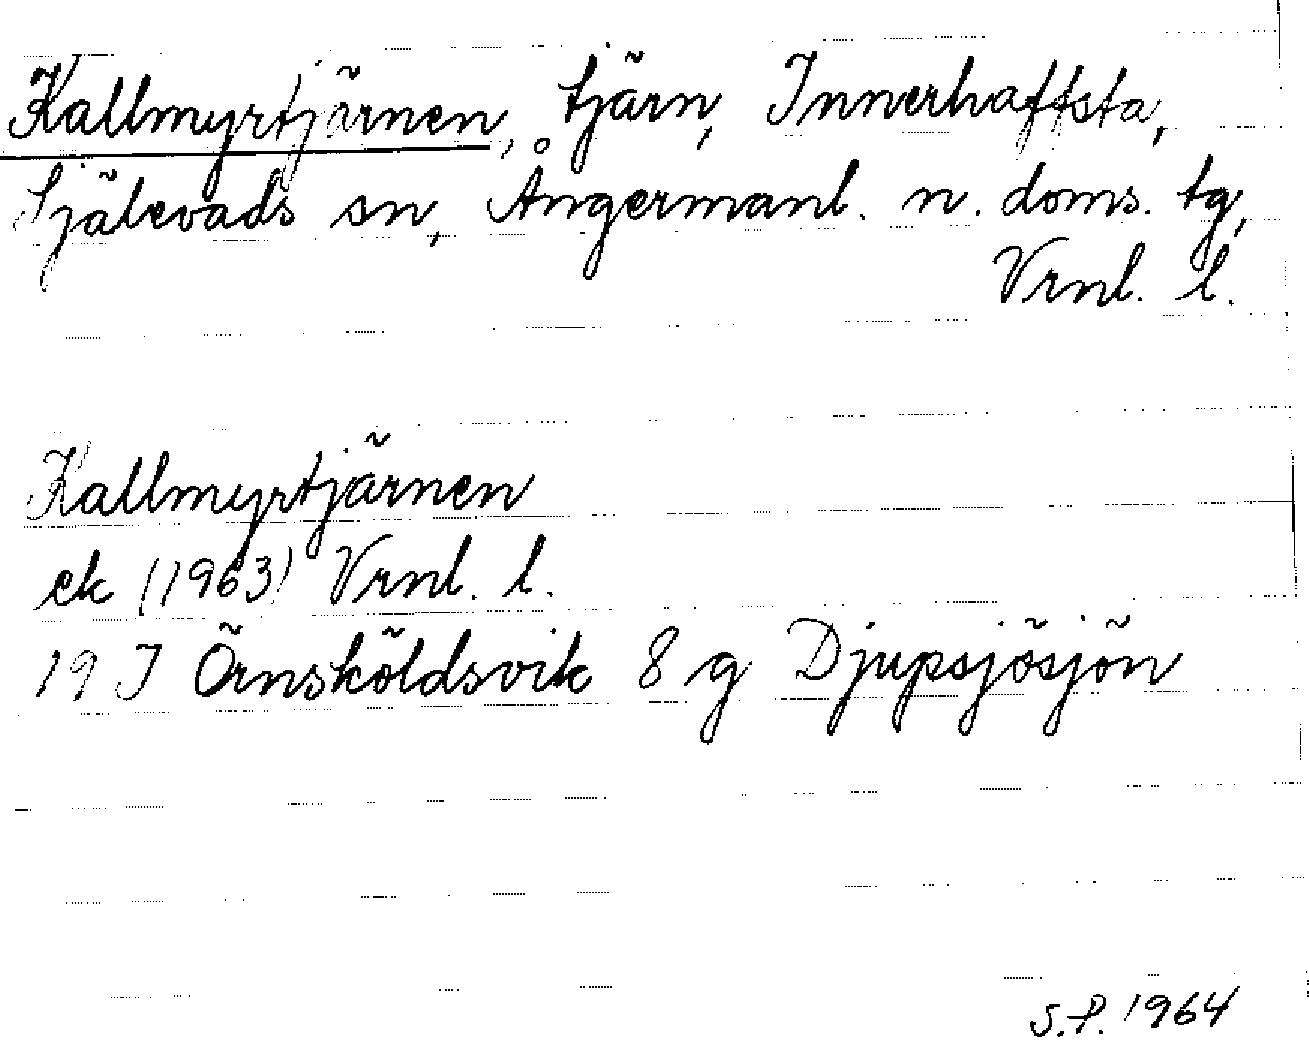 Kallmyrtjärnen, tjärn, Innerhaffsta,
Själevads sn, Ångermanl. n. doms. tg,
Vrnl. l.
Kallmyrtjärnen
ek (1963) Vrnl. l.
19 J Örnsköldsvik 8 g Djupsjösjön
S.P. 1964